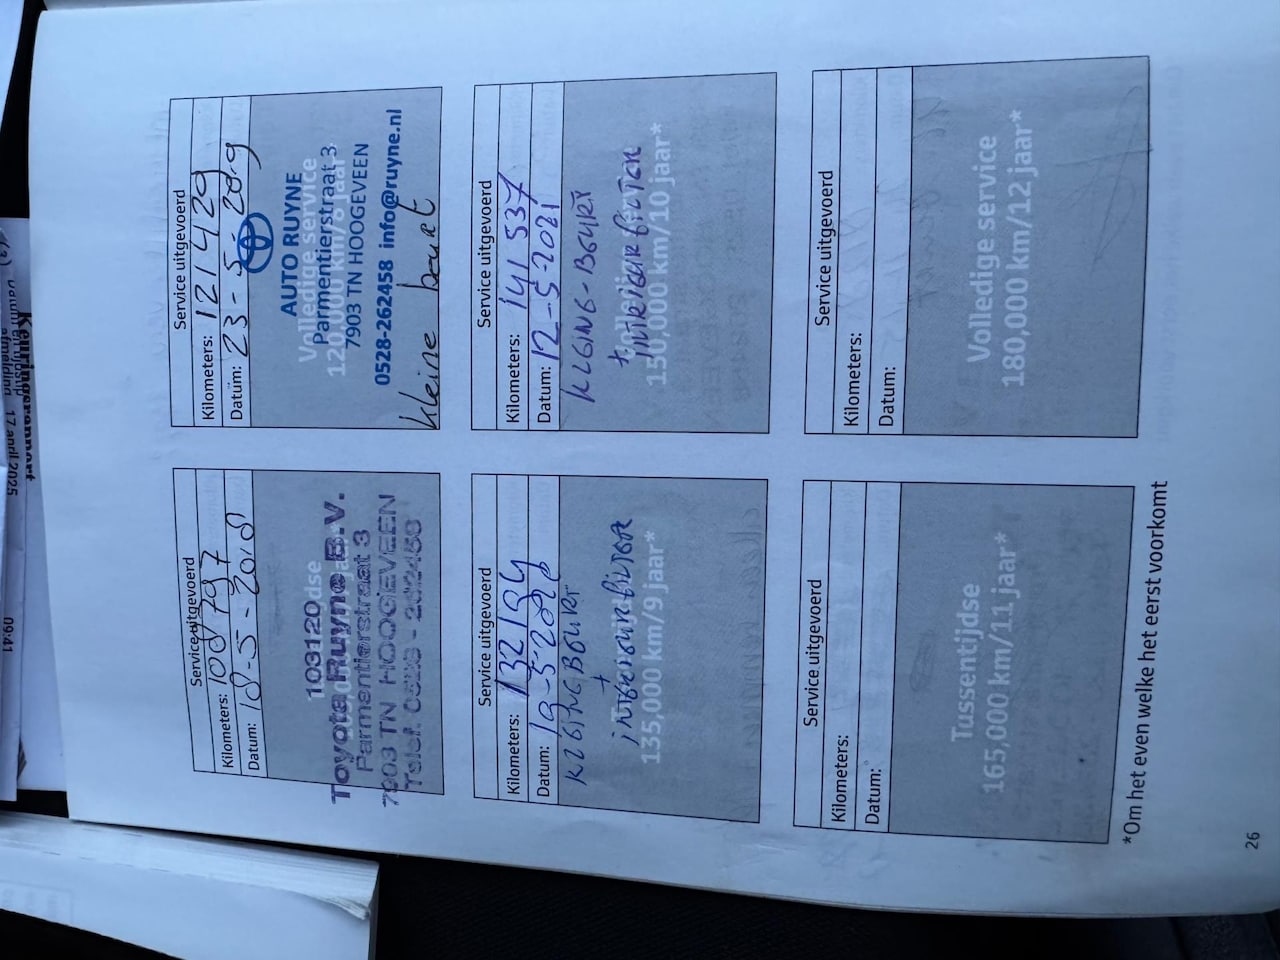 Service uitgevoerd
Kilometers: 108797
Datum: 18-5-2018
103120
Toyota Ruyne B.V.
Parmentierstraat 3
7903 TN HOOGEVEEN
Service uitgevoerd
Kilometers: 121429
Datum: 23-5-2019
Volledige service
120,000 km/8 jaar*
AUTO RUYNE
Parmentierstraat 3
7903 TN HOOGEVEEN
0528-262458 info@ruyne.nl
kleine beurt
Service uitgevoerd
Kilometers: 132194
Datum: 19-5-2020
135,000 km/9 jaar*
Service uitgevoerd
Kilometers: 141 537
Datum: 12-5-2021
150,000 km/10 jaar*
Service uitgevoerd
Kilometers:
Datum:
Tussentijdse
165,000 km/11 jaar*
Service uitgevoerd
Kilometers:
Datum:
Volledige service
180,000 km/12 jaar*
*Om het even welke het eerst voorkomt
26
Kenringsrapport
17 april 2025
09:41